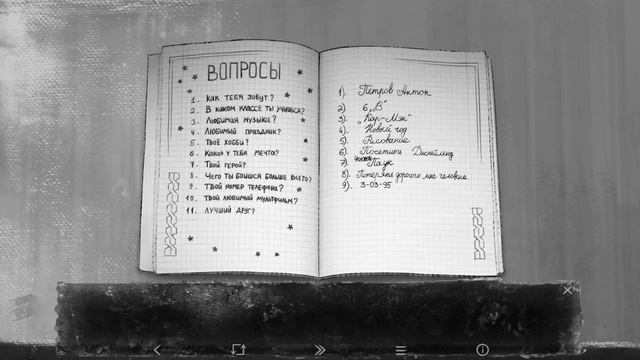 ВОПРОСЫ
1. Как тебя зовут?
2. В каком классе ты учишься?
3. Любимая музыка?
4. Любимый праздник?
5. Твоё хобби?
6. Какая у тебя мечта?
7. Твой герой?
8. Чего ты боишся больше всего?
9. Твой номер телефона?
10. Твой любимый мультфильм?
11. Лучший друг?
1). Петров Антон
2). 6 „В"
3). „Кар-Мэн"
4). Новый год
5). Рисование
6). Посетить Диснейленд
7). Паук
8). Потерять дорогого мне человека
9). 3-03-95